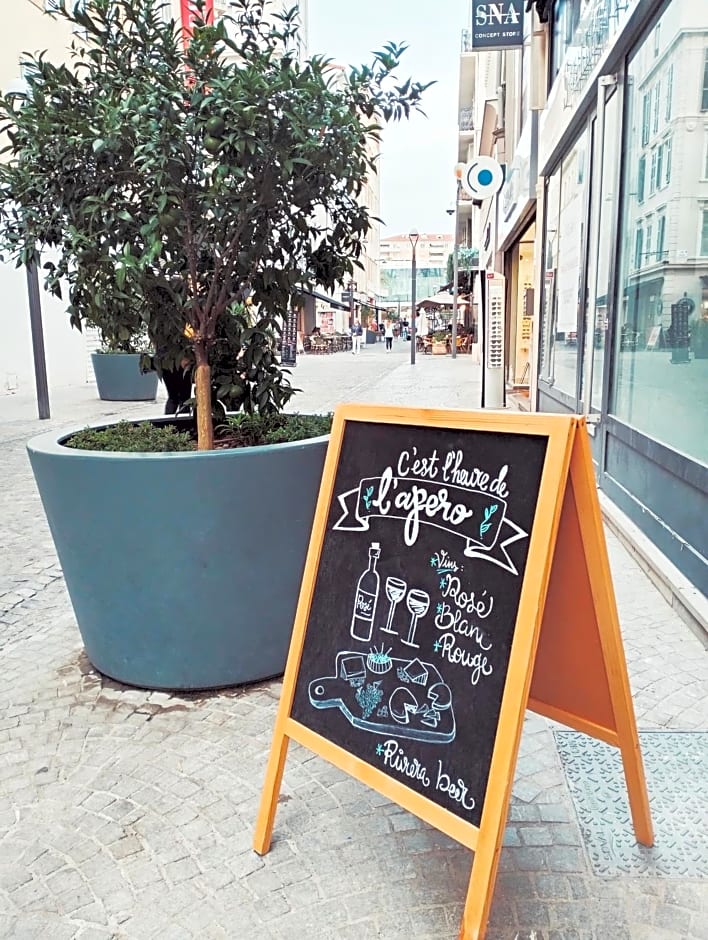 SNA
CONCEPT STORE
C'est l'heure de
l'apero
Vins:
*Rosé
*Blanc
*Rouge
Rosé
*Riviera beer